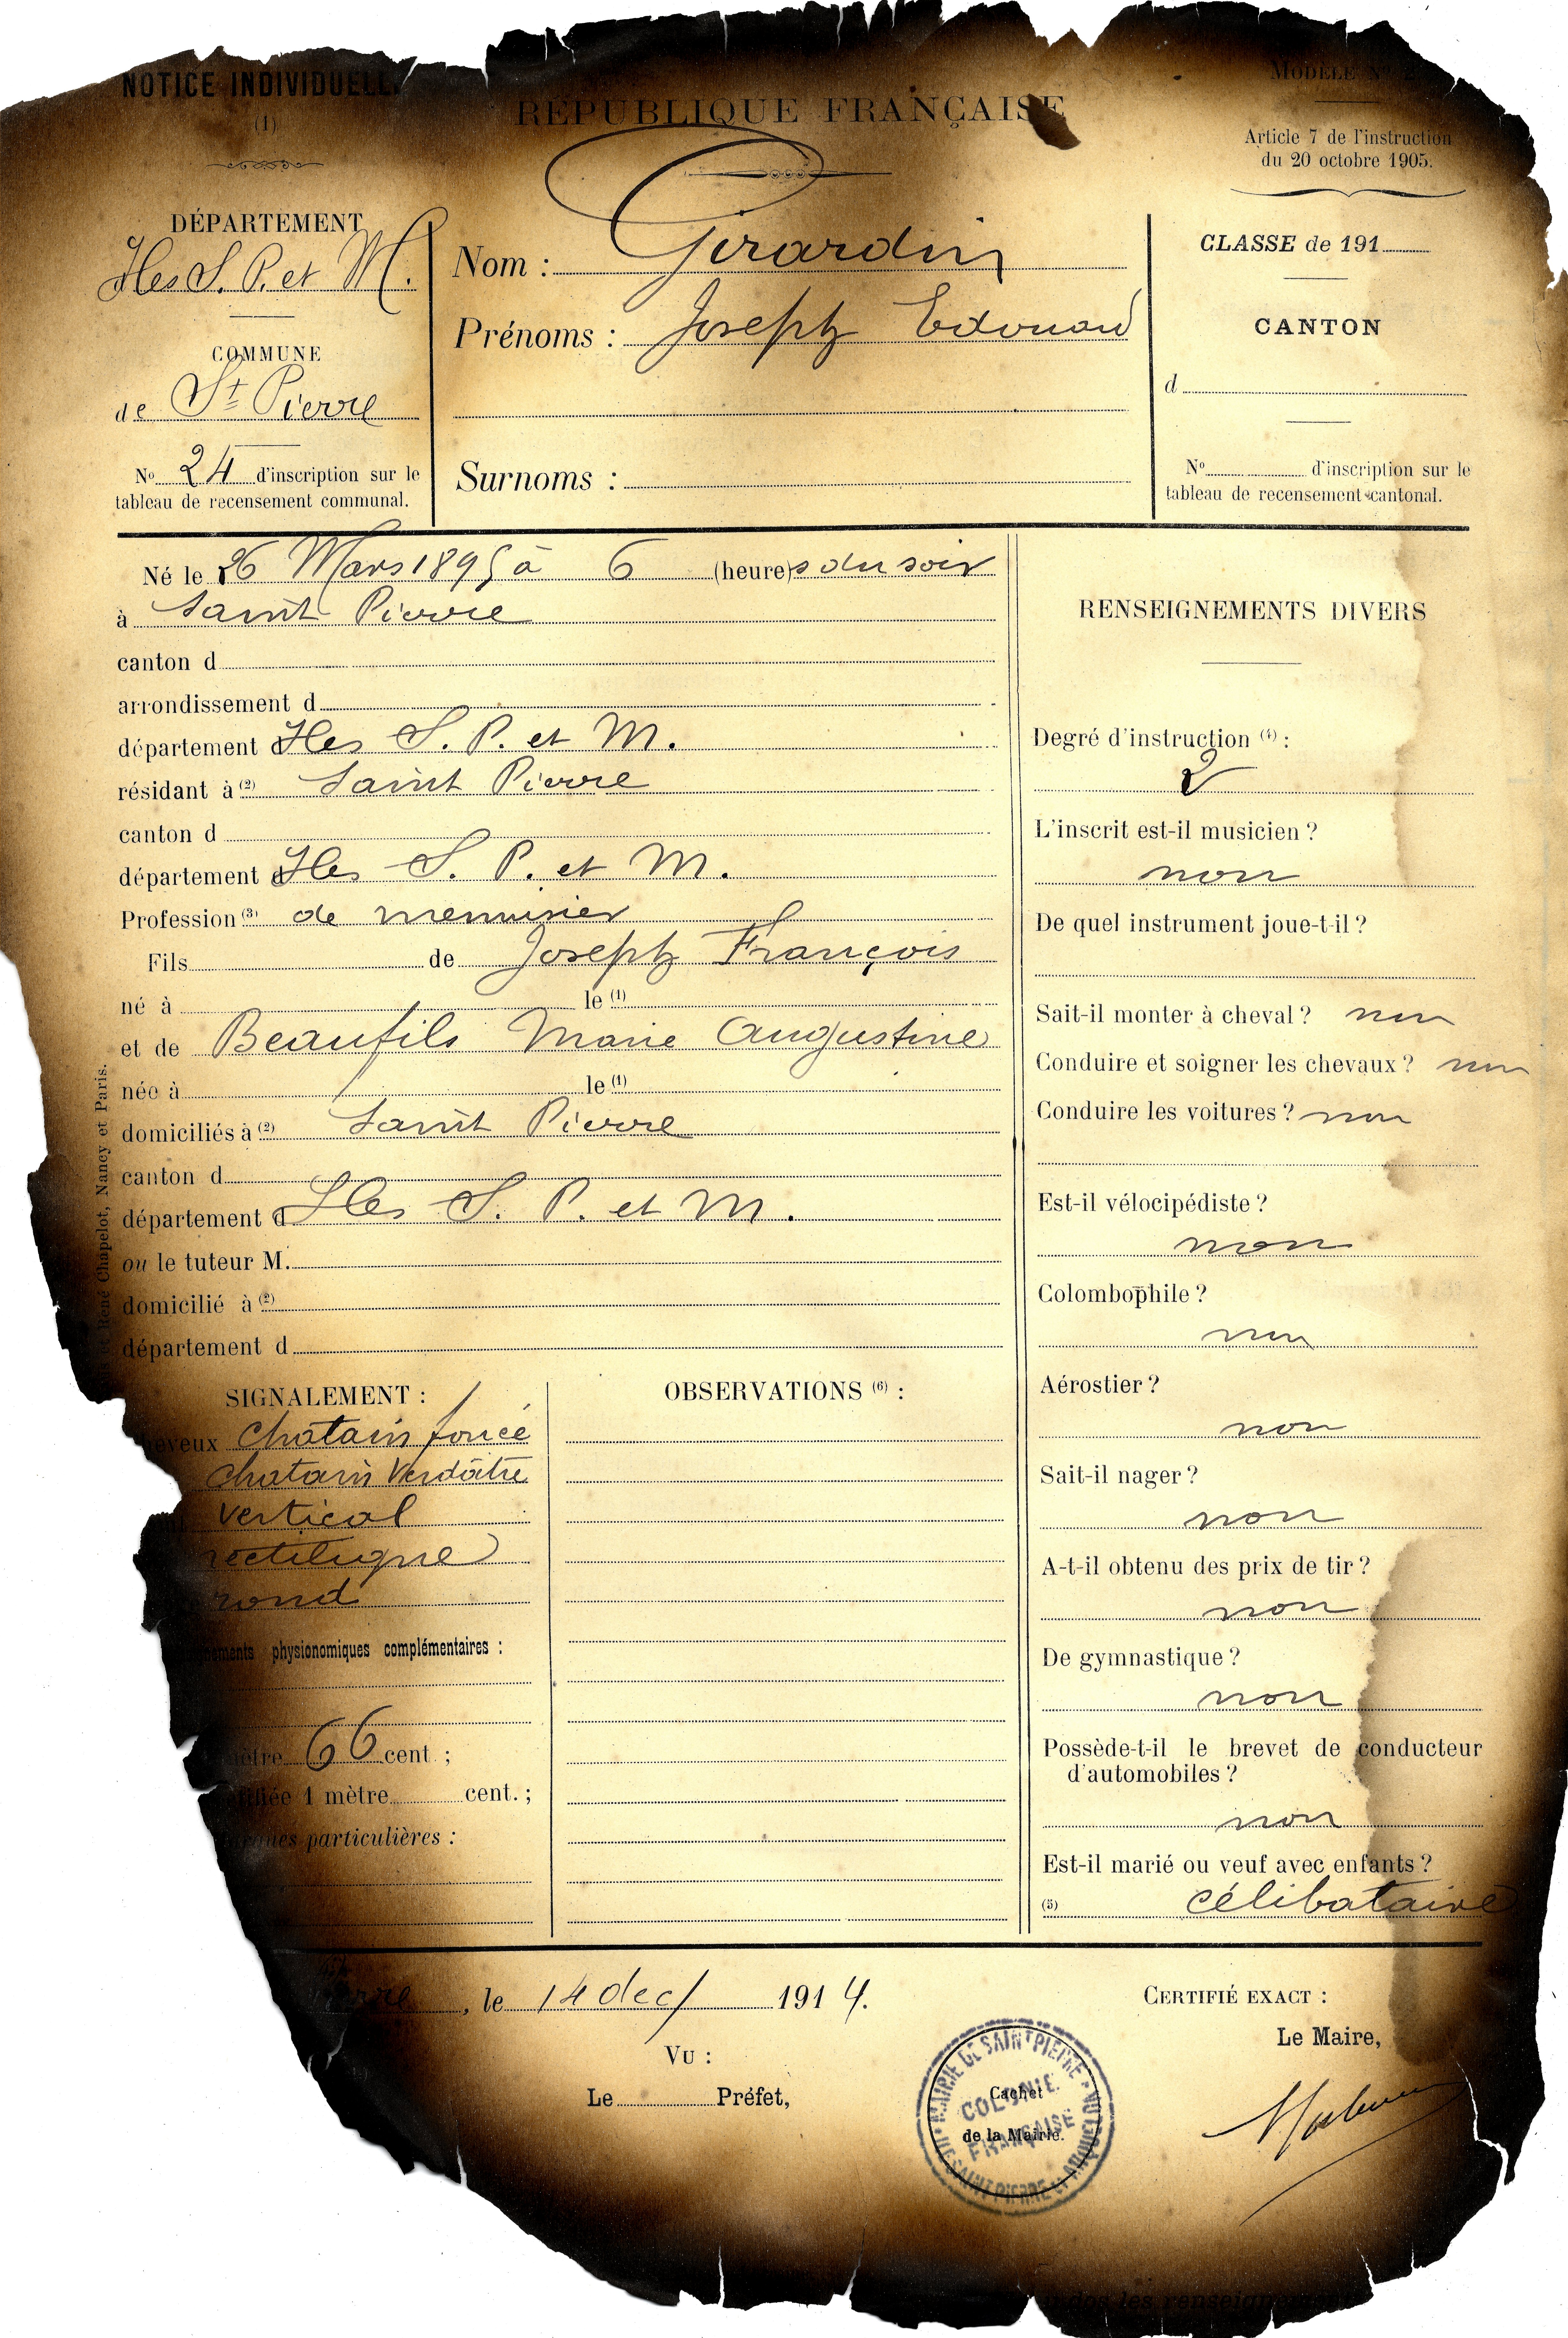 NOTICE INDIVIDUELLE
(1)
RÉPUBLIQUE FRANÇAISE
MODÈLE N°
Article 7 de l'instruction
du 20 octobre 1905.
DÉPARTEMENT
Iles S. P. et M.
COMMUNE
de St Pierre
N° 24 d'inscription sur le
tableau de recensement communal.
Nom : Girardin
Prénoms : Joseph Edouard
Surnoms :
CLASSE de 191
CANTON
d
N° d'inscription sur le
tableau de recensement cantonal.
Né le 26 Mars 1895 à 6 (heures du soir
à Saint Pierre
canton d
arrondissement d
département d Iles S. P. et M.
résidant à (2) Saint Pierre
canton d
département d Iles S. P. et M.
Profession (3) de menuisier
Fils de Joseph François
né à le (1)
et de Beaufils Marie Augustine
née à le (1)
domiciliés à (2) Saint Pierre
canton d
département d Iles S. P. et M.
ou le tuteur M.
domicilié à (2)
département d
René Chapelot, Nancy et Paris.
SIGNALEMENT :
cheveux chatain foncé
chatain Verdâtre
vertical
rectiligne
rond
physionomiques complémentaires :
mètre 66 cent. ;
1 mètre cent. ;
particulières :
OBSERVATIONS (6) :
RENSEIGNEMENTS DIVERS
Degré d'instruction (4) :
2
L'inscrit est-il musicien ?
non
De quel instrument joue-t-il ?
Sait-il monter à cheval ? non
Conduire et soigner les chevaux ? non
Conduire les voitures ? non
Est-il vélocipédiste ?
non
Colombophile ?
non
Aérostier ?
non
Sait-il nager ?
non
A-t-il obtenu des prix de tir ?
non
De gymnastique ?
non
Possède-t-il le brevet de conducteur
d'automobiles ?
non
Est-il marié ou veuf avec enfants ?
(5) célibataire
Pierre, le 14 dec/ 1914.
VU :
Le Préfet,
CERTIFIÉ EXACT :
Le Maire,
MAIRIE DE SAINT PIERRE
COLONIE
FRANÇAISE
Cachet
de la Mairie.
les renseign